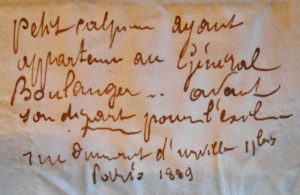 Petit calpin ayant
appartenu au Général
Boulanger .. avant
son départ pour l'exil
rue Dumont d'urville 11 bis
Paris 1889